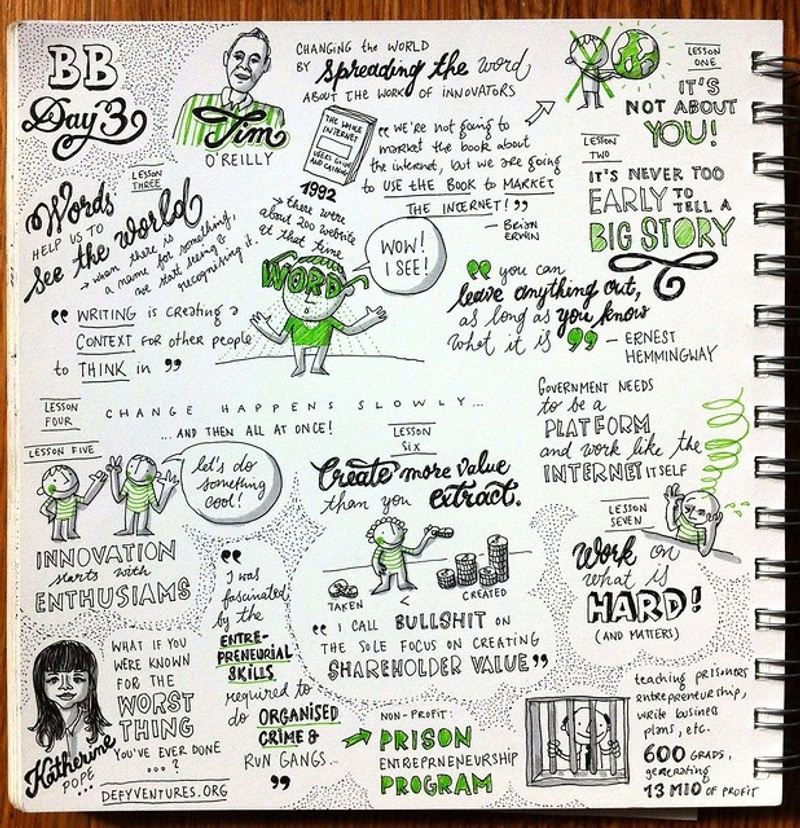 BB
Day 3
Tim
O'REILLY
CHANGING the WORLD
BY spreading the word
ABOUT THE WORK OF INNOVATORS
THE WHOLE
INTERNET
USERS GUIDE
AND CATALOG
1992
→ there were
about 200 website
at that time
"we're not going to
market the book about
the internet, but we are going
to USE tHE BOOK to MARKET
THE INTERNET!"
— BRIAN
ERWIN
LESSON
ONE
IT'S
NOT ABOUT
YOU!
LESSON
TWO
IT'S NEVER TOO
EARLY TO
TELL A
BIG STORY
LESSON
THREE
Words
HELP US TO
see the world
→ when there is
a name for something,
we start seeing &
recognising it.
"WRITING is creating a
CONTEXT FOR other people
to THINK in"
WORD
WOW!
I SEE!
"you can
leave anything out,
as long as you know
what it is" — ERNEST
HEMMINGWAY
LESSON
FOUR
CHANGE HAPPENS SLOWLY...
...AND THEN ALL AT ONCE!
LESSON FIVE
let's do
something
cool!
INNOVATION
starts with
ENTHUSIAMS
LESSON
SIX
Create more value
than you extract.
TAKEN
<
CREATED
"I CALL BULLSHIT ON
THE SOLE FOCUS ON CREATING
SHAREHOLDER VALUE"
GOVERNMENT NEEDS
to be a
PLATFORM
and work like the
INTERNET ITSELF
LESSON
SEVEN
Work on
what is
HARD!
(AND MATTERS)
Katherine
POPE
...
WHAT IF YOU
WERE KNOWN
FOR THE
WORST
THING
YOU'VE EVER DONE
...?
DEFYVENTURES.ORG
"I was
fascinated
by the
ENTRE-
PRENEURIAL
SKILLS
required to
do ORGANISED
CRIME &
RUN GANGS...
"
NON-PROFIT:
PRISON
ENTREPRENEURSHIP
PROGRAM
teaching prisoners
entrepreneurship,
write business
plans, etc.
600 GRADS,
generating
13 MIO OF PROFIT